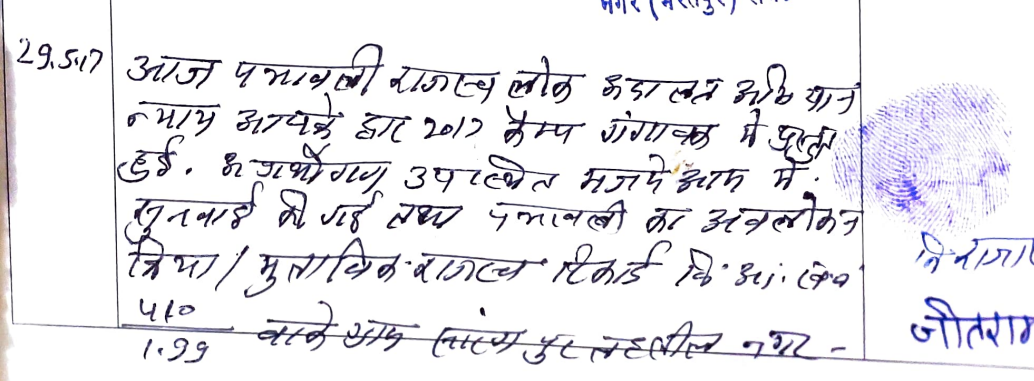 नगर (भरतपुर)
29.5.17 आज पत्रावली राजस्व लोक अदालत अभियान
न्याय आपके द्वार 2017 कैम्प गंगावक में प्रस्तुत
हुई. उपस्थित मजमे आम में.
सुनवाई की गई तथा पत्रावली का अवलोकन
किया / मुताबिक राजस्व रिकार्ड
410
1.99 वाके ग्राम तहसील नगर -
जीतराम